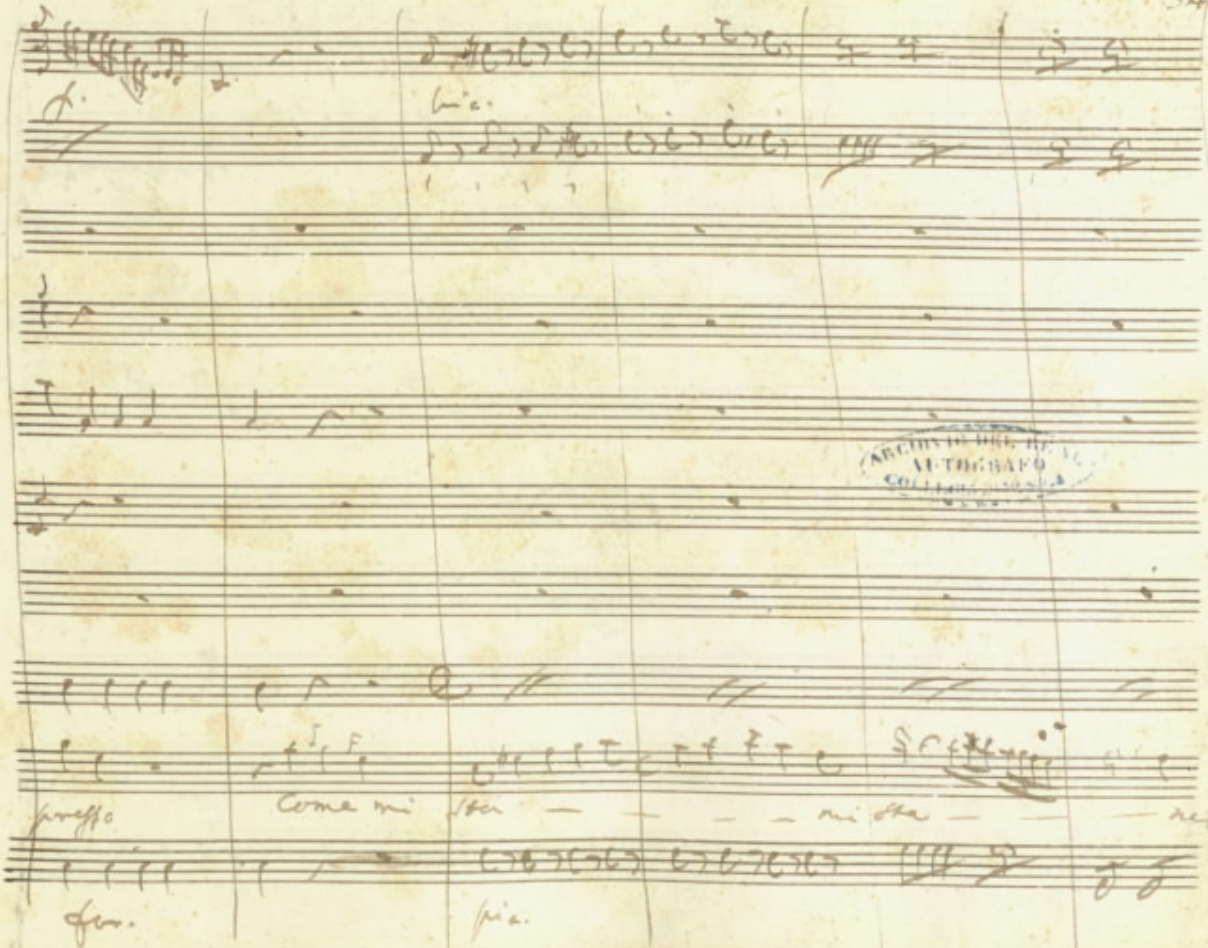 f.
pia.
ARCHIVIO DEL REAL
AUTOGRAFO
presso Come mi sta — — — — mi sta — — — ne
for. pia.